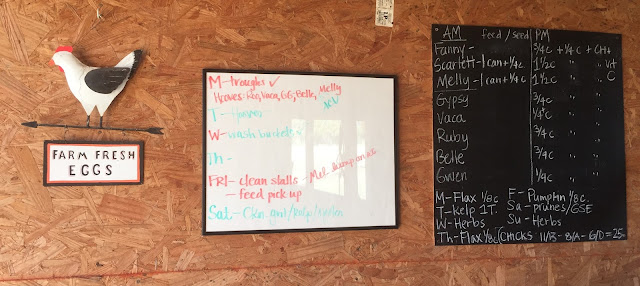 FARM FRESH
EGGS
M-troughs ✓
Hooves: Roo, Vaca, GG, Belle, Melly
T-
W- wash buckets ✓
Th-
FRI- clean stalls -
- feed pick up
Sat-
AM feed/seed PM
Fanny- 3/4c + 1/4c + CH+
Scarlett-1can+1/4c 1 1/2c " Vit
Melly-1can+1/4c 1 1/2c " C
Gypsy 3/4c "
Vaca 1/4c "
Ruby 3/4c "
Belle 3/4c "
Gwen 1/4c "
M-Flax 1/8c F-Pumpkin 1/8c.
T-kelp 1T. Sa-prunes/GSE
W-Herbs Su-Herbs
Th-Flax 1/8c CHICKS 11/B- 8/A- 6/D=25